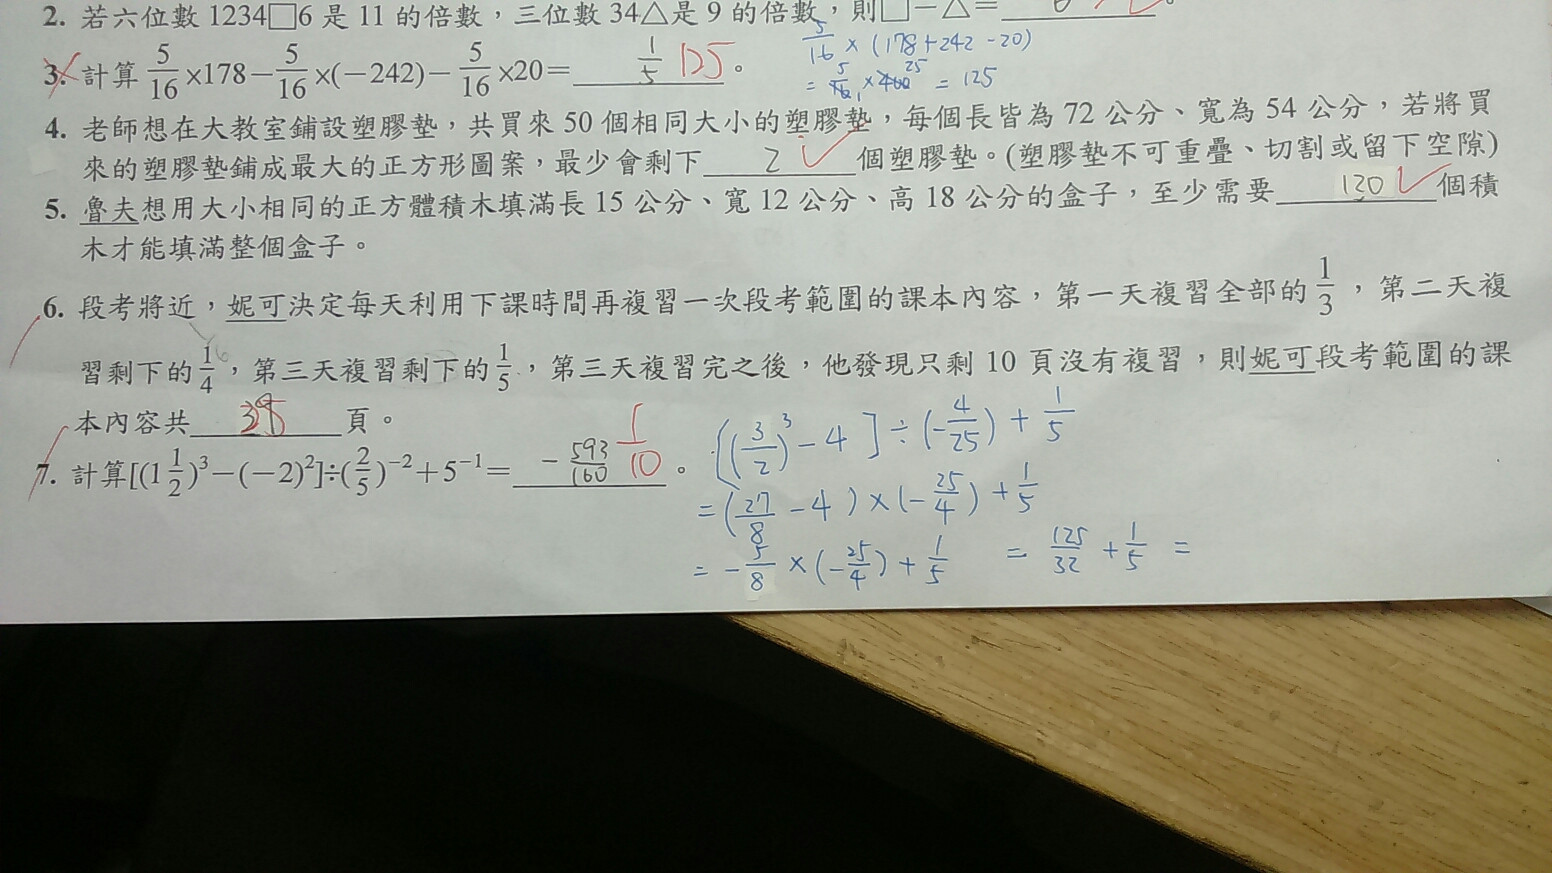 2. 若六位數 1234□6 是 11 的倍數，三位數 34△是 9 的倍數，則□－△＝
3. 計算 5/16×178－5/16×(－242)－5/16×20＝ 1/5 125 。
5/16 × (178+242-20)
= 5/16 1 ×400 25 = 125
4. 老師想在大教室鋪設塑膠墊，共買來 50 個相同大小的塑膠墊，每個長皆為 72 公分、寬為 54 公分，若將買
來的塑膠墊鋪成最大的正方形圖案，最少會剩下 2 個塑膠墊。(塑膠墊不可重疊、切割或留下空隙)
5. 魯夫想用大小相同的正方體積木填滿長 15 公分、寬 12 公分、高 18 公分的盒子，至少需要 120 個積
木才能填滿整個盒子。
6. 段考將近，妮可決定每天利用下課時間再複習一次段考範圍的課本內容，第一天複習全部的 1/3，第二天複
習剩下的 1/4，第三天複習剩下的 1/5，第三天複習完之後，他發現只剩 10 頁沒有複習，則妮可段考範圍的課
本內容共 頁。
7. 計算[(1 1/2)³－(－2)²]÷(2/5)⁻²＋5⁻¹＝ -593/160 1/10 。
[(3/2)³-4]÷(-4/25)+1/5
=(27/8-4)×(-25/4)+1/5
=-5/8×(-25/4)+1/5 =125/32+1/5=